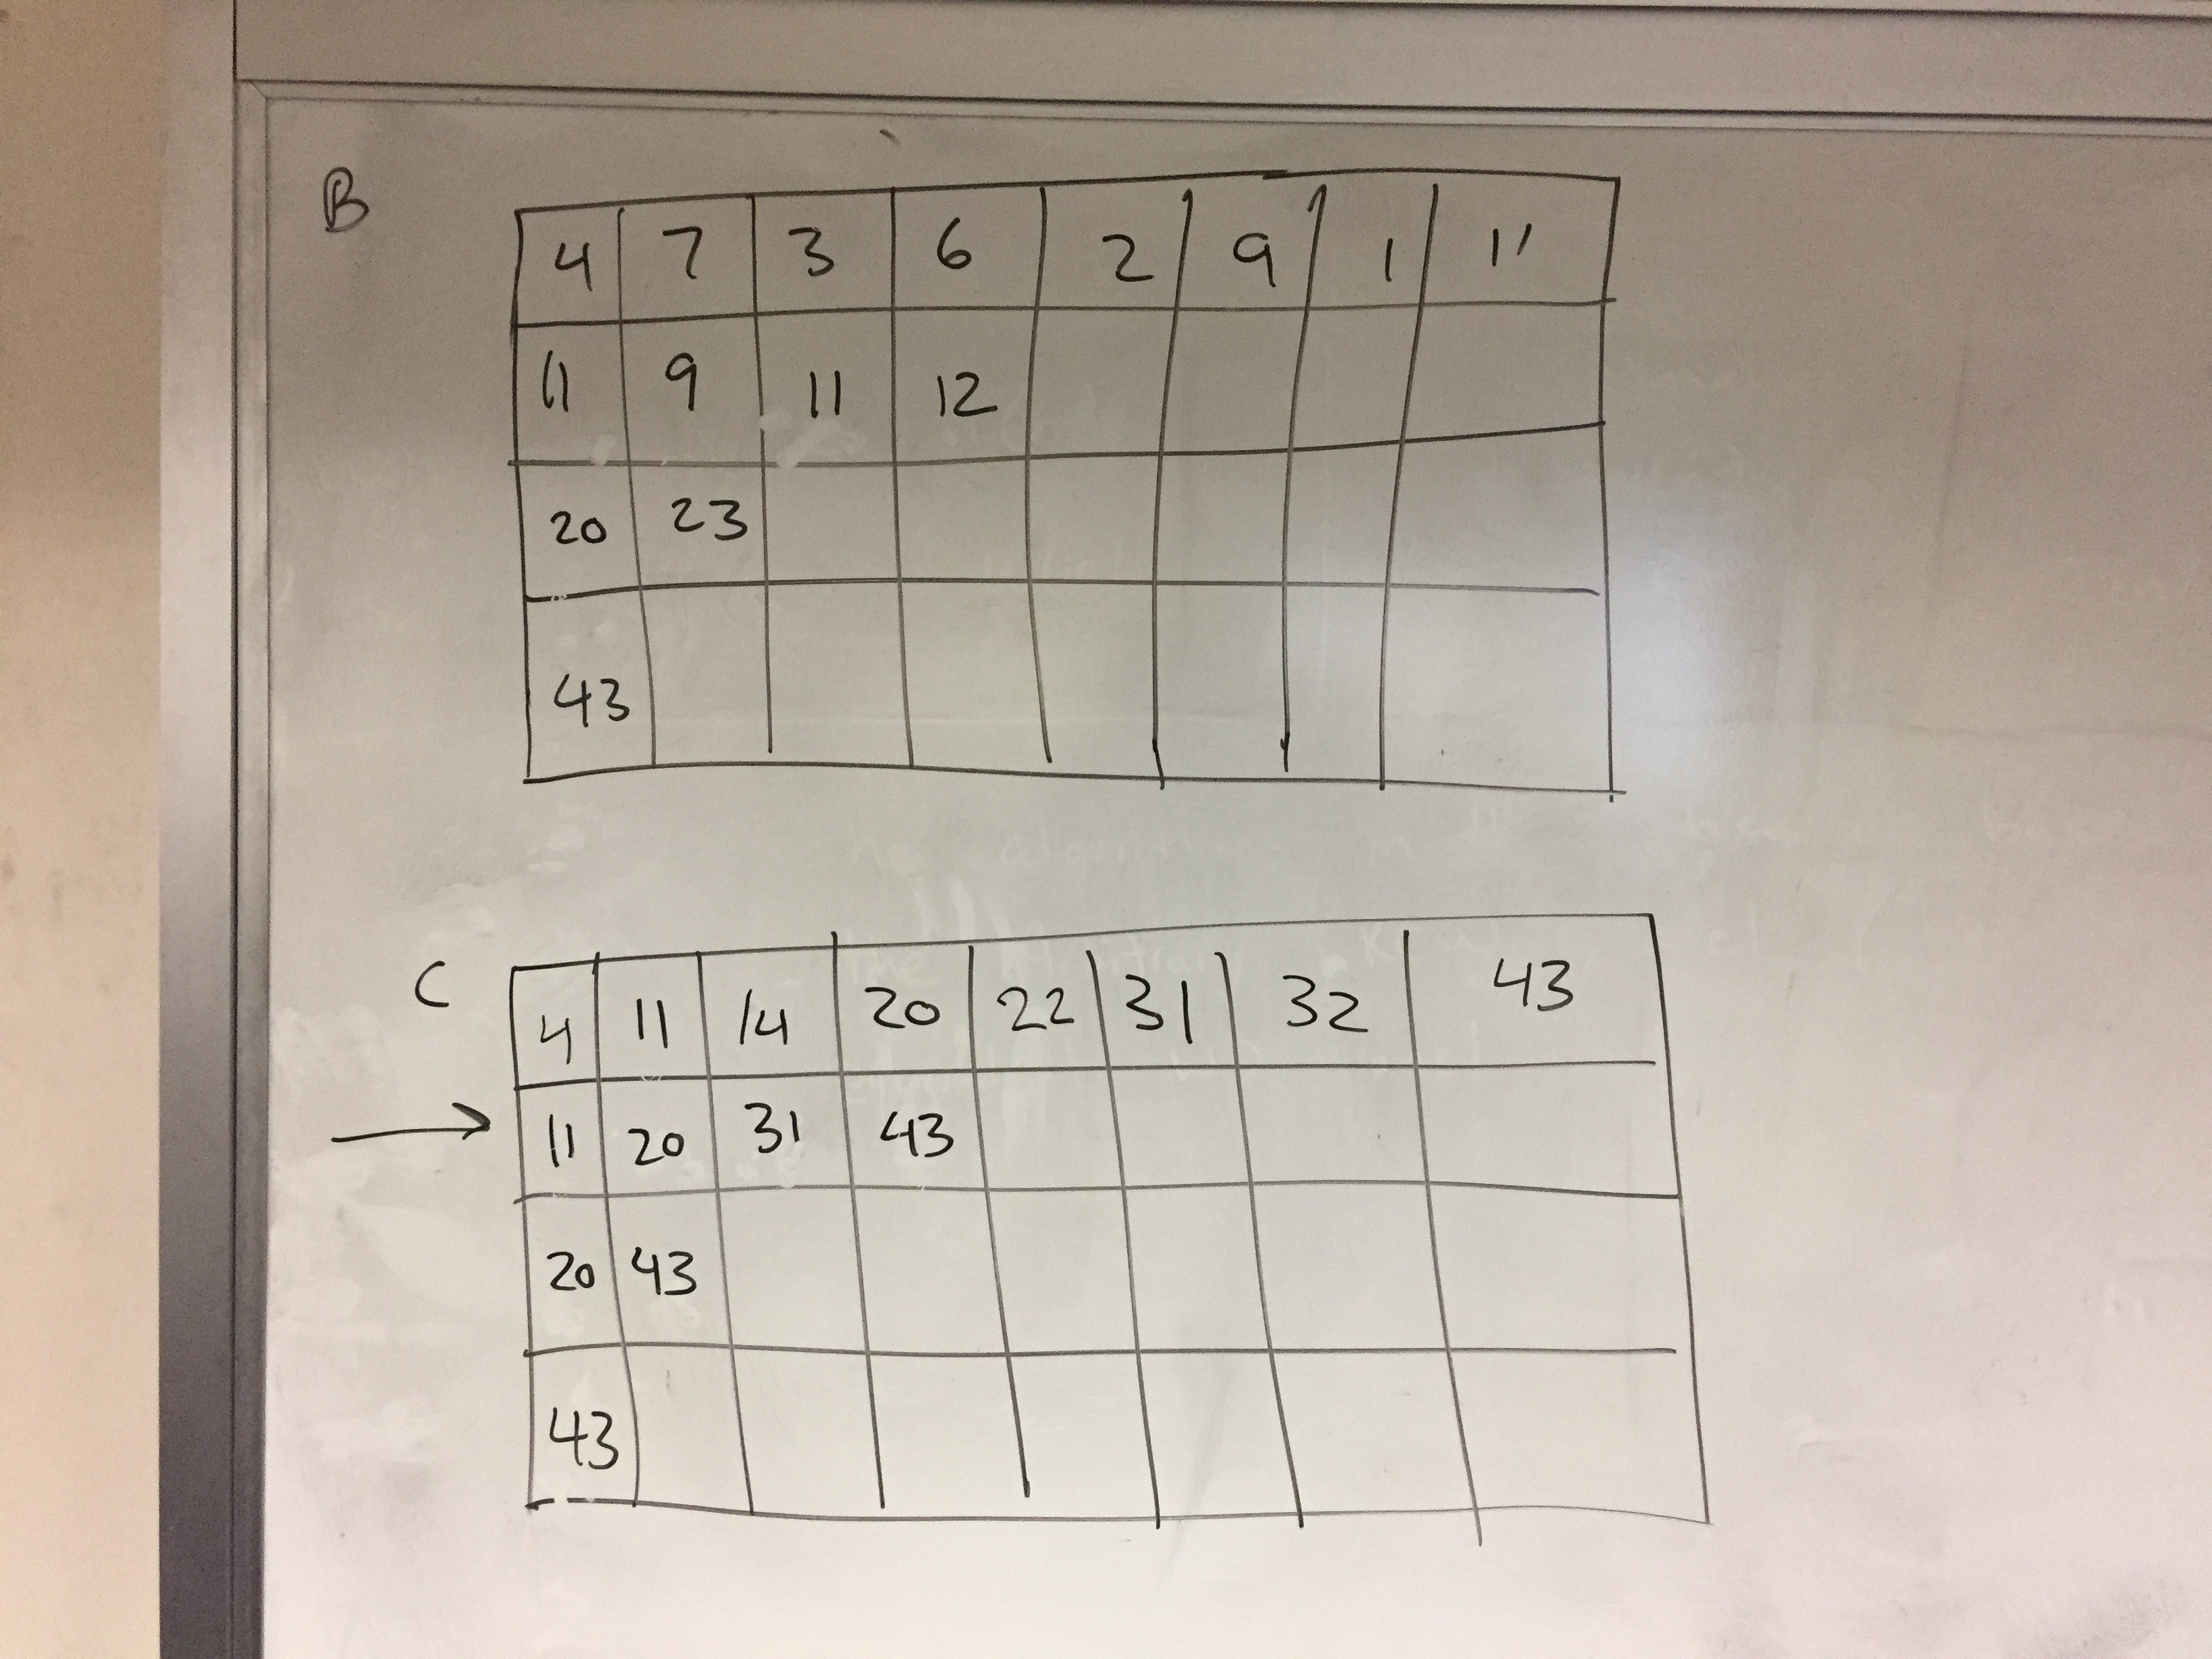 B
4 7 3 6 2 9 1 11
11 9 11 12
20 23
43
C
4 11 14 20 22 31 32 43
11 20 31 43
20 43
43